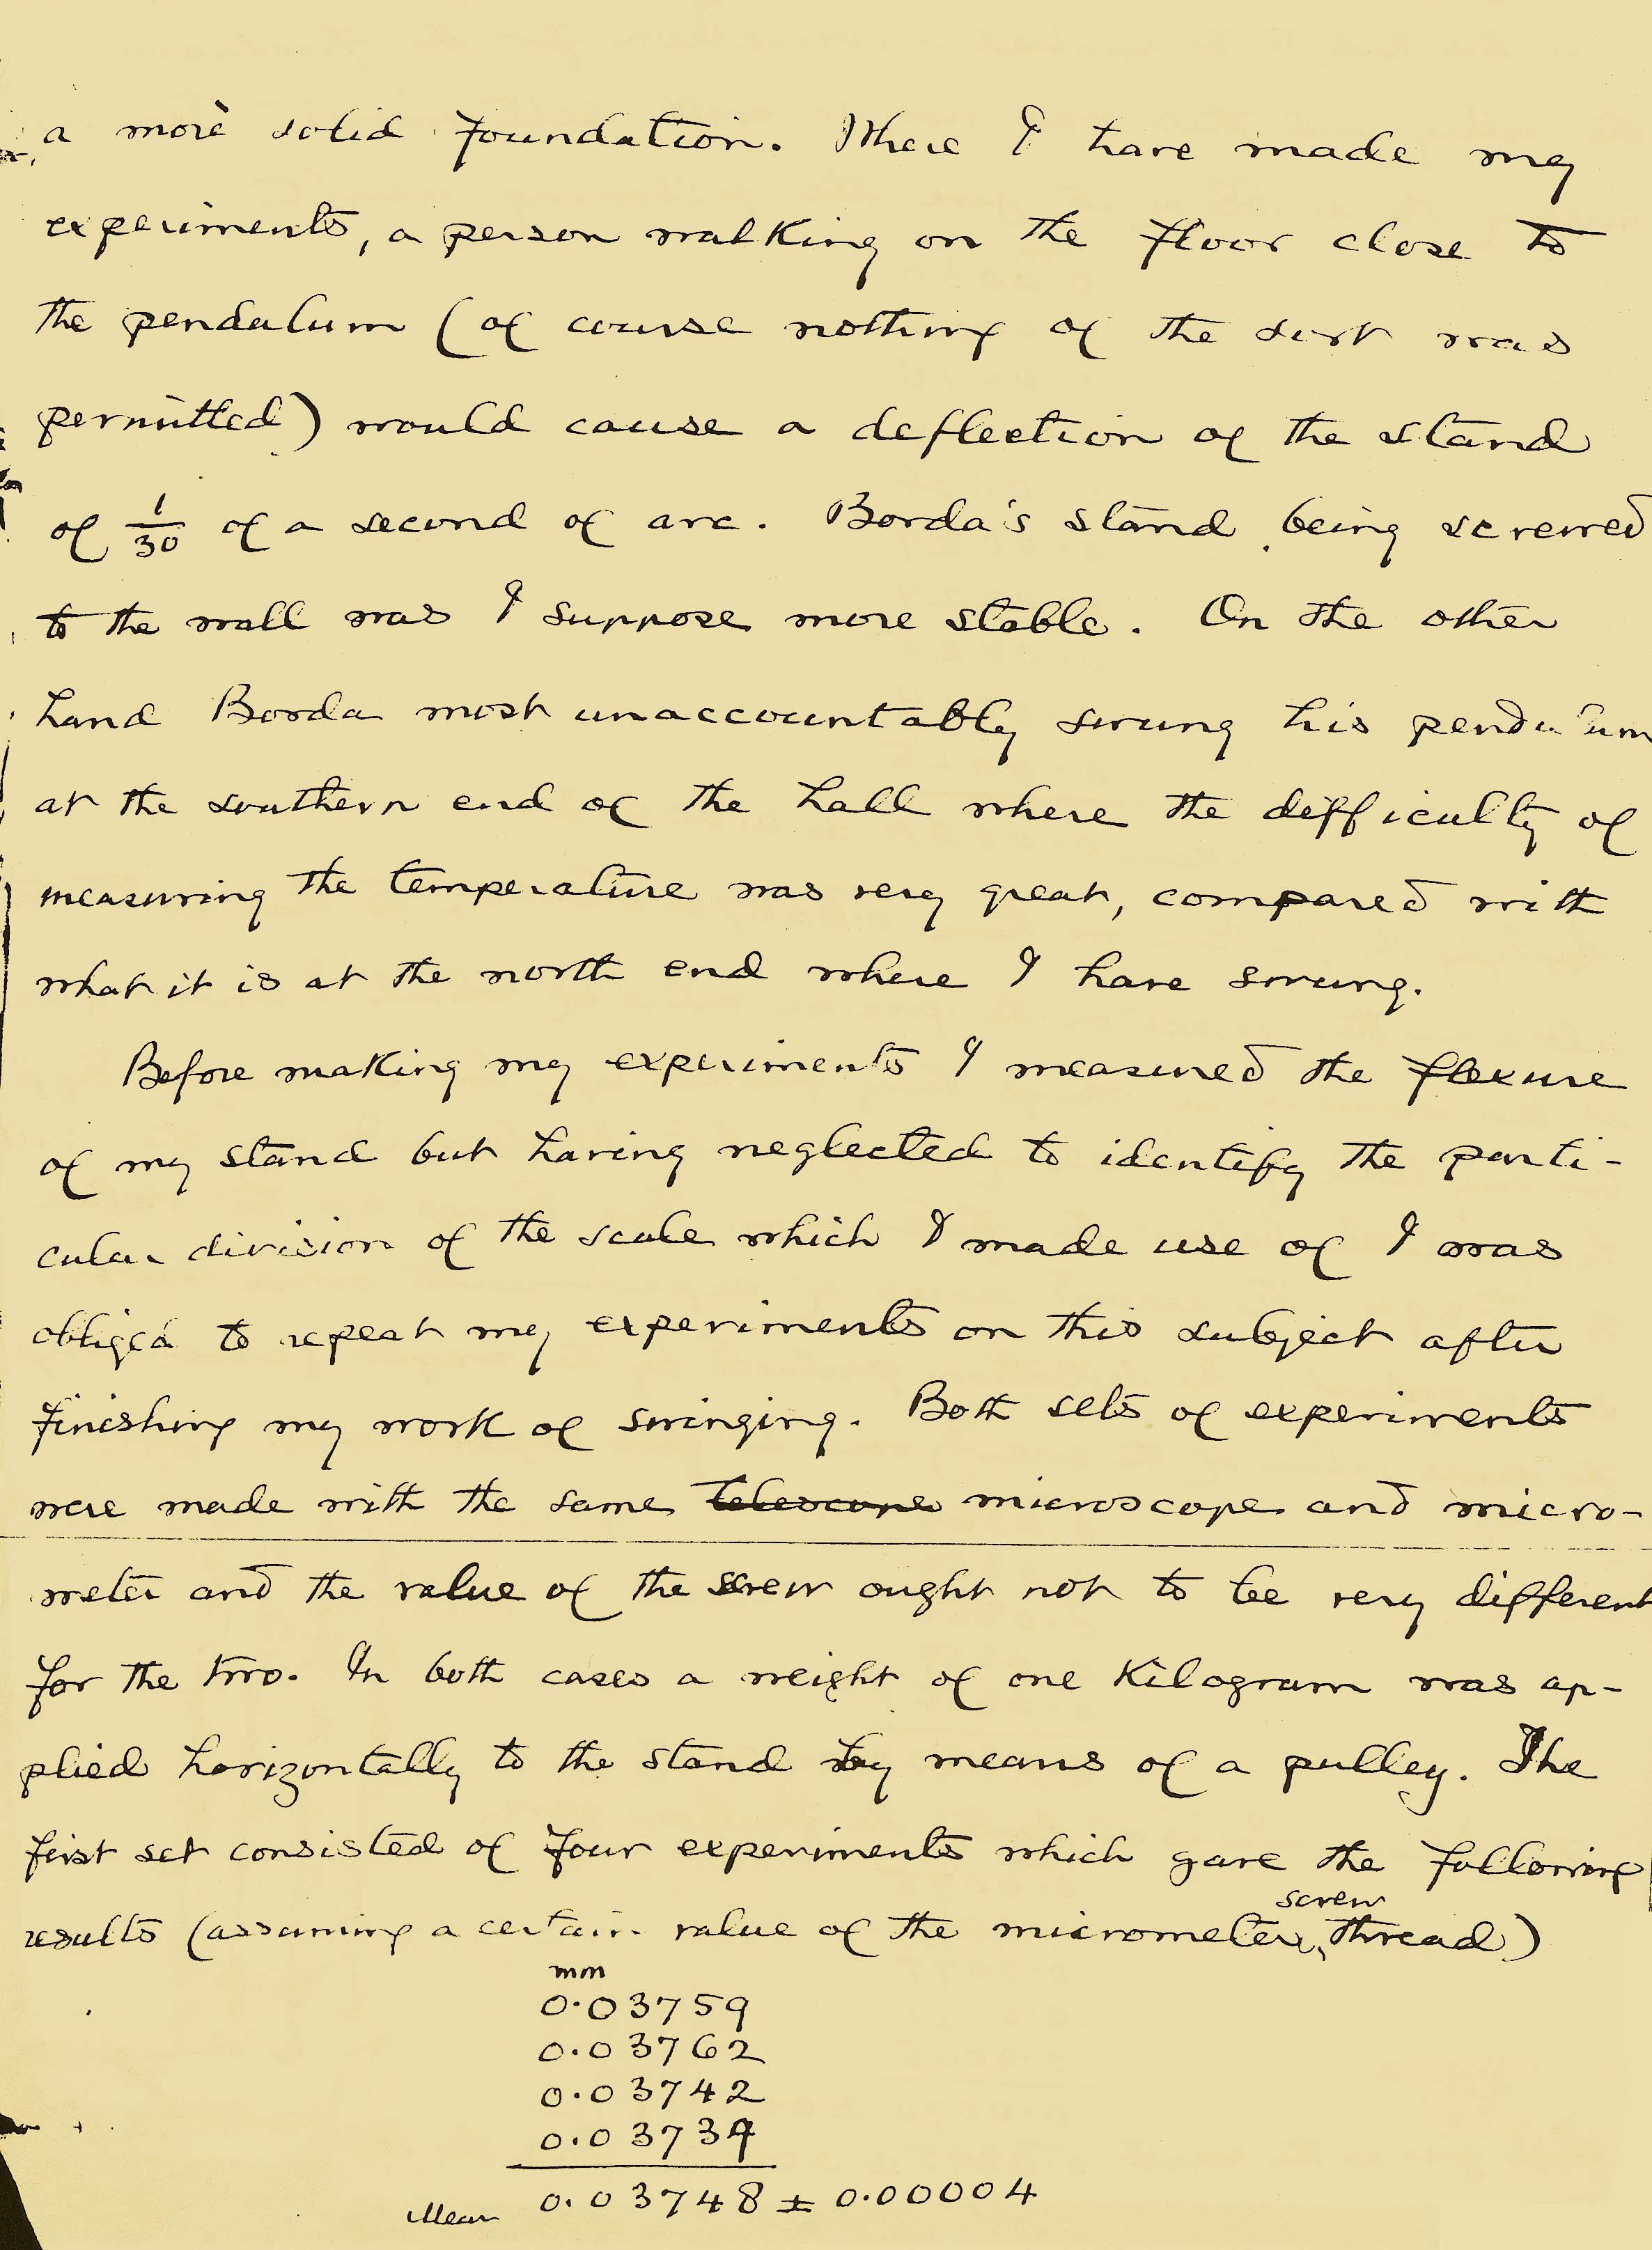 a more solid foundation. Where I have made my
experiments, a person walking on the floor close to
the pendulum (of course nothing of the sort was
permitted) would cause a deflection of the stand
of 1/30 of a second of arc. Borda's stand being screwed
to the wall was I suppose more stable. On the other
hand Borda most unaccountably swung his pendulum
at the southern end of the hall where the difficulty of
measuring the temperature was very great, compared with
what it is at the north end where I have swung.
Before making my experiments I measured the flexure
of my stand but having neglected to identify the parti-
cular division of the scale which I made use of I was
obliged to repeat my experiments on this subject after
finishing my work of swinging. Both sets of experiments
were made with the same telescope microscope and micro-
meter and the value of the screw ought not to be very different
for the two. In both cases a weight of one Kilogram was ap-
plied horizontally to the stand by means of a pulley. The
first set consisted of four experiments which gave the following
screw
results (assuming a certain value of the micrometer thread)
mm
0.03759
0.03762
0.03742
0.03734
Mean 0.03748 ± 0.00004